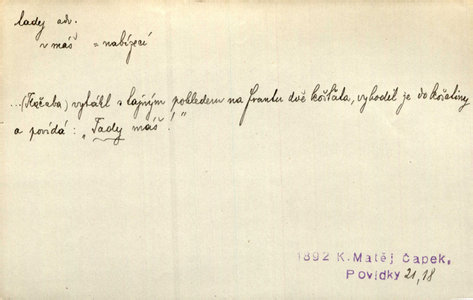 tady adv.
v máš = nabízecí
...(Kočaba) vytáhl s tajným pohledem na Frantu dvě košťata, vyhodil je do kořetiny
a povídá: „Tady máš!"
1892 K. Matěj Čapek,
Povídky 21,18